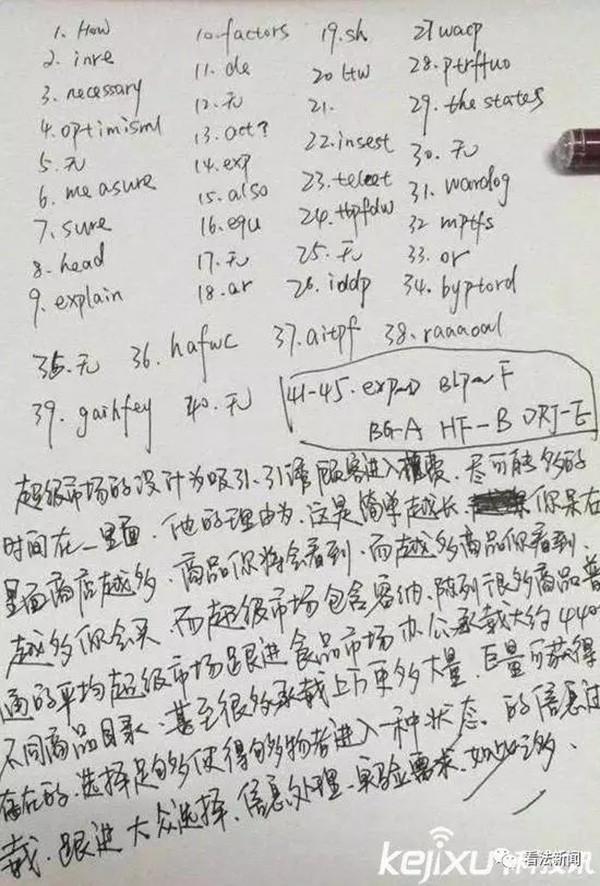 1. How
2. inre
3. necessary
4. optimisml
5. 无
6. measure
7. sure
8. head
9. explain
10. factors
11. de
12. 无
13. act?
14. exp
15. also
16. equ
17. 无
18. ar
19. sh
20. ltw
21.
22. insest
23. teleet
24.
25. 无
26. iddp
27 wacp
28. ptrftuo
29. the states
30. 无
31. wardog
32 mptfs
33. or
34. byptord
35. 无 36. hafwc 37. aitpf 38. raaaoal
39. gaihfey 40. 无
41-45. exp-D BLp-F
BG-A HF-B DRJ-E
超级市场的设计为吸引、引诱顾客进入 尽可能多的
时间在一里面. 他的理由为、这是简单越长、你呆在
里面商店越多、商品你将会看到、而越多商品你看到、
越多你会买、而超级市场包含容纳、陈列很多商品普
通的平均超级市场跟进食品市场办公承载大约440
不同商品目录、甚至很多承载上下更多大量、巨量可获得
存在的、选择足够多使得够多物者进入一种状态。的信息过
载、跟进大众选择、信息处理、实验需求、如此之多、
看法新闻
kejixu